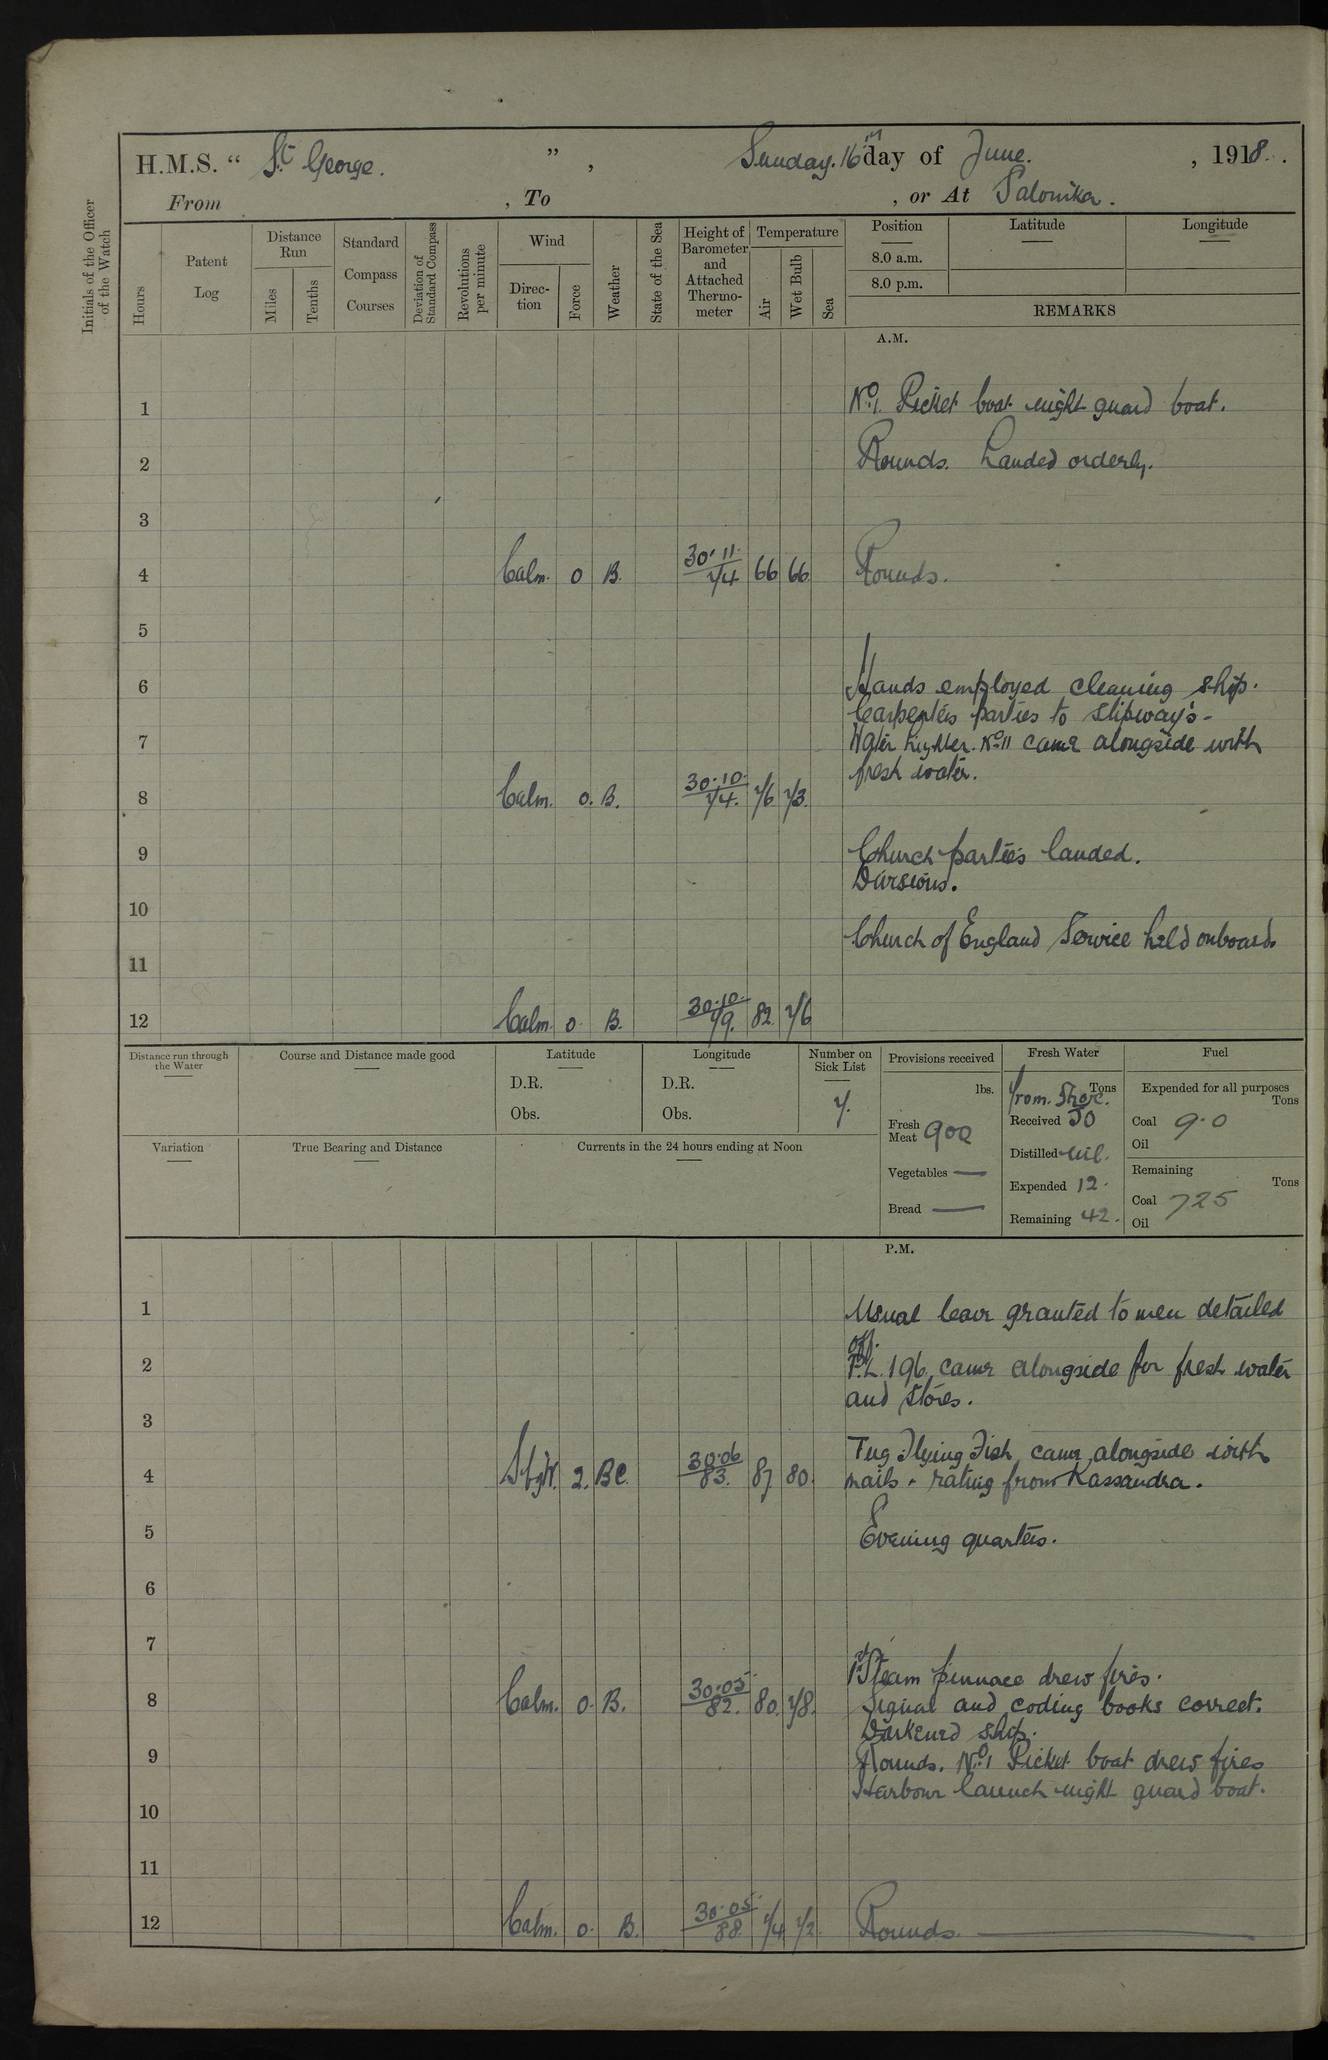 H.M.S. “ St George. ” , Sunday. 16th day of June. , 1918.
From , To , or At Salonika.
Initials of the Officer of the Watch
Hours
Patent Log
Distance Run
Miles
Tenths
Standard Compass Courses
Deviation of Standard Compass
Revolutions per minute
Wind
Direction
Force
Weather
State of the Sea
Height of Barometer and Attached Thermometer
Temperature
Air
Wet Bulb
Sea
Position Latitude Longitude
8.0 a.m.
8.0 p.m.
REMARKS
A.M.
1 No 1. Picket boat night guard boat.
2 Rounds. Landed orderly.
3
4 Calm. 0 B. 30.11. 74 66 66. Rounds.
5
6 Hands employed cleaning ship.
Carpenters parties to slipway's -
7 Water lighter. No 11 came alongside with
fresh water.
8 Calm. 0. B. 30.10. 74. 76 73.
9 Church parties landed.
Divisions.
10
Church of England Service held onboard.
11
12 Calm. 0. B. 30.10. 79. 82. 76
Distance run through the Water
Course and Distance made good
Latitude
D.R.
Obs.
Longitude
D.R.
Obs.
Number on Sick List
7.
Provisions received
lbs.
Fresh Meat 900
Vegetables —
Bread —
Fresh Water
Tons
from. Shore.
Received 50
Distilled nil.
Expended 12.
Remaining 42.
Fuel
Expended for all purposes
Tons
Coal 9.0
Oil
Remaining
Tons
Coal 725
Oil
Variation
True Bearing and Distance
Currents in the 24 hours ending at Noon
P.M.
1 Usual leave granted to men detailed
off.
2 196. came alongside for fresh water
and stores.
3
Tug Flying Fish came alongside with
4 SbyW. 2. BC. 30.06 83. 87 80. mails + rating from Kassandra.
5 Evening quarters.
6
7
1st Steam pinnace drew fires.
8 Calm. 0. B. 30.05. 82. 80. 78. Signal and coding books correct.
Darkened ship.
9 Rounds. No 1 Picket boat drew fires
Harbour launch night guard boat.
10
11
12 Calm. 0. B. 30.05. 88 74 72. Rounds.